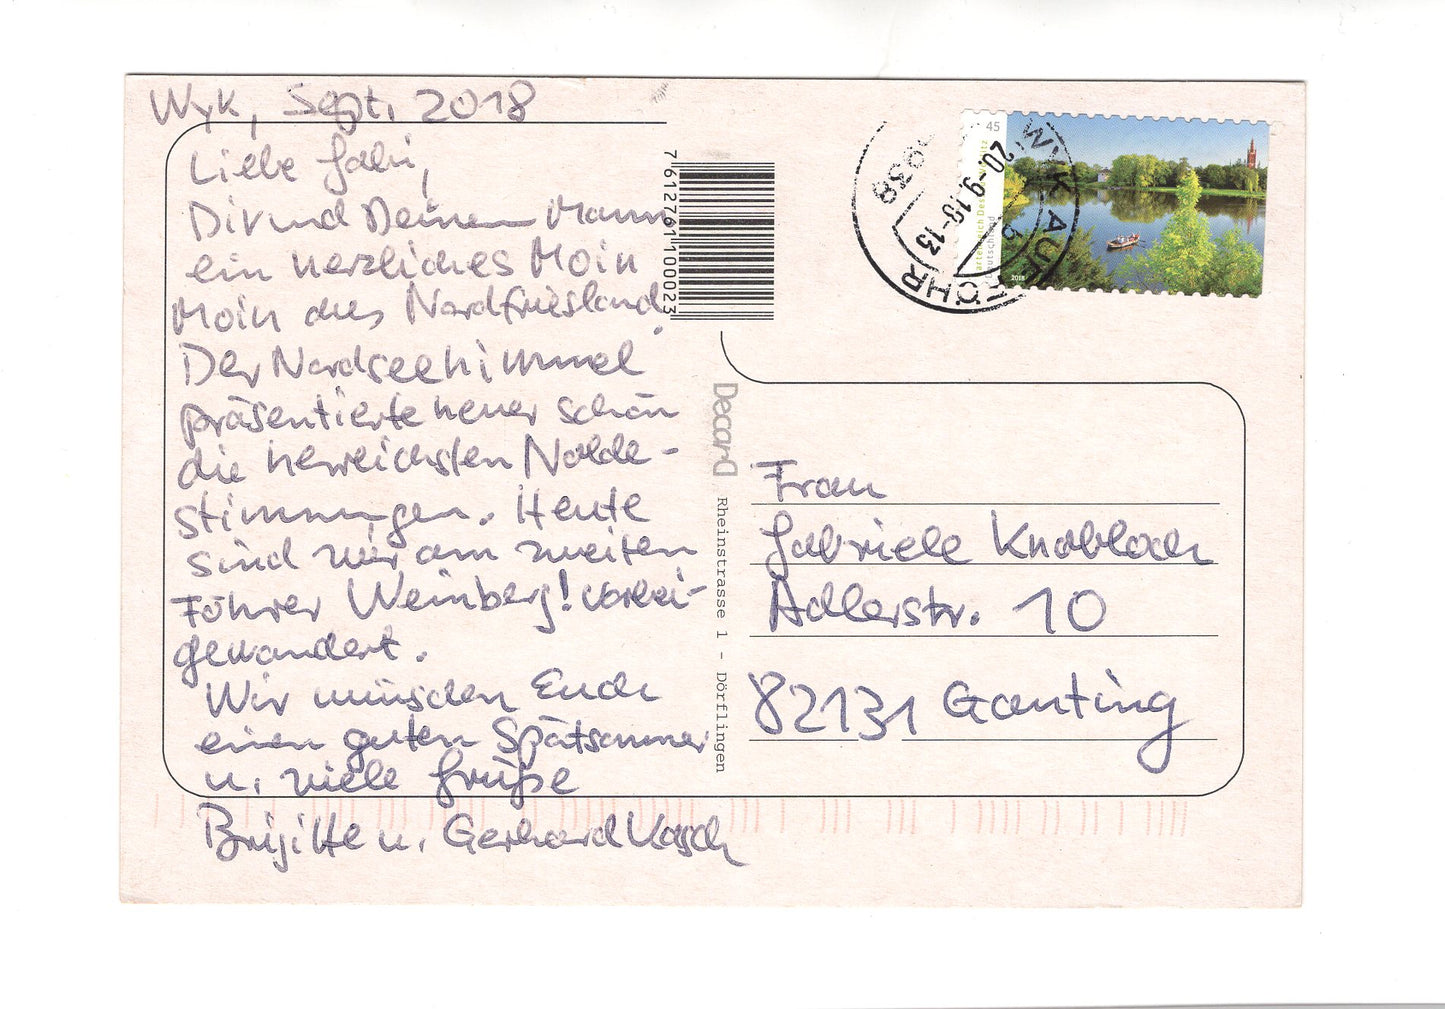 Wyk, Sept. 2018
Liebe Gabi,
Dir und Deinem Mann
ein herzliches Moin
Moin aus Nordfriesland.
Der Nordseehimmel
präsentierte heuer schon
die herrlichsten Nolde-
stimmungen. Heute
sind wir am zweiten
Föhrer Weinberg! vorbei-
gewandert.
Wir wünschen Euch
einen guten Spätsommer
u. viele Grüße
Brigitte u. Gerhard
7612761100023
Decard
Rheinstrasse 1 - Dörflingen
45
Deutschland
2018
WYK AUF FÖHR
20.-9.18-13
5938
Frau
Gabriele Knobloch
Adlerstr. 10
82131 Gauting